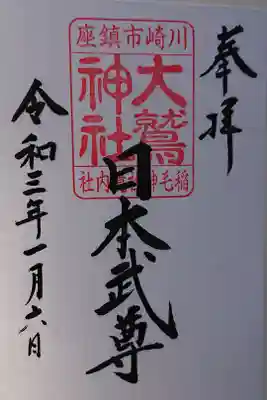 奉拝
川崎市鎮座
大鷲神社
稲毛神社境内社
日本武尊
令和三年一月六日